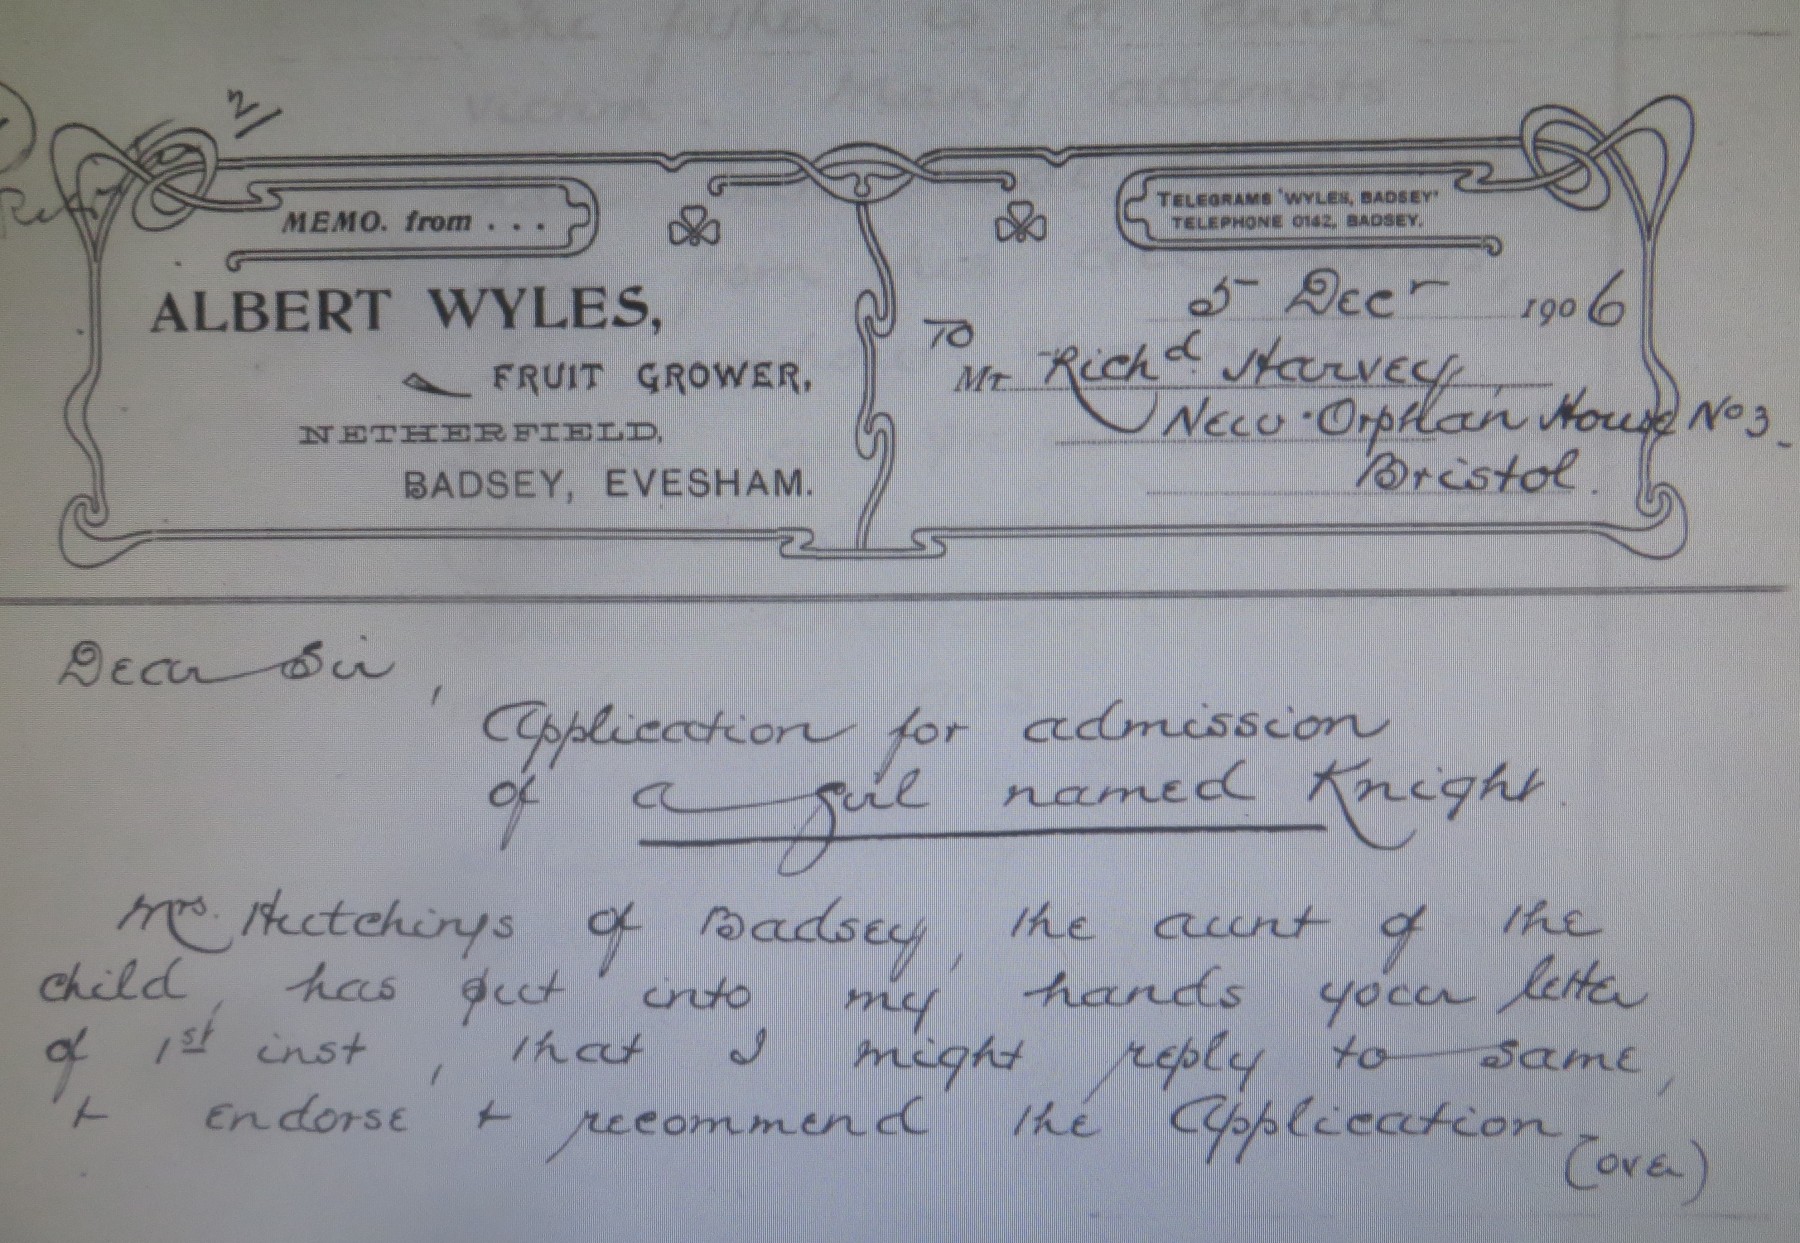 2
MEMO. from . . .
ALBERT WYLES,
FRUIT GROWER,
NETHERFIELD,
BADSEY, EVESHAM.
TELEGRAMS 'WYLES, BADSEY'
TELEPHONE 0142, BADSEY.
5 Decr 1906
To
Mr Richd. Harvey,
New Orphan House No 3
Bristol.
Dear Sir,
Application for admission
of a girl named Knight
Mrs. Hutchings of Badsey, the aunt of the
child, has put into my hands your letter
of 1st inst, that I might reply to same,
+ endorse + recommend the Application
(over)